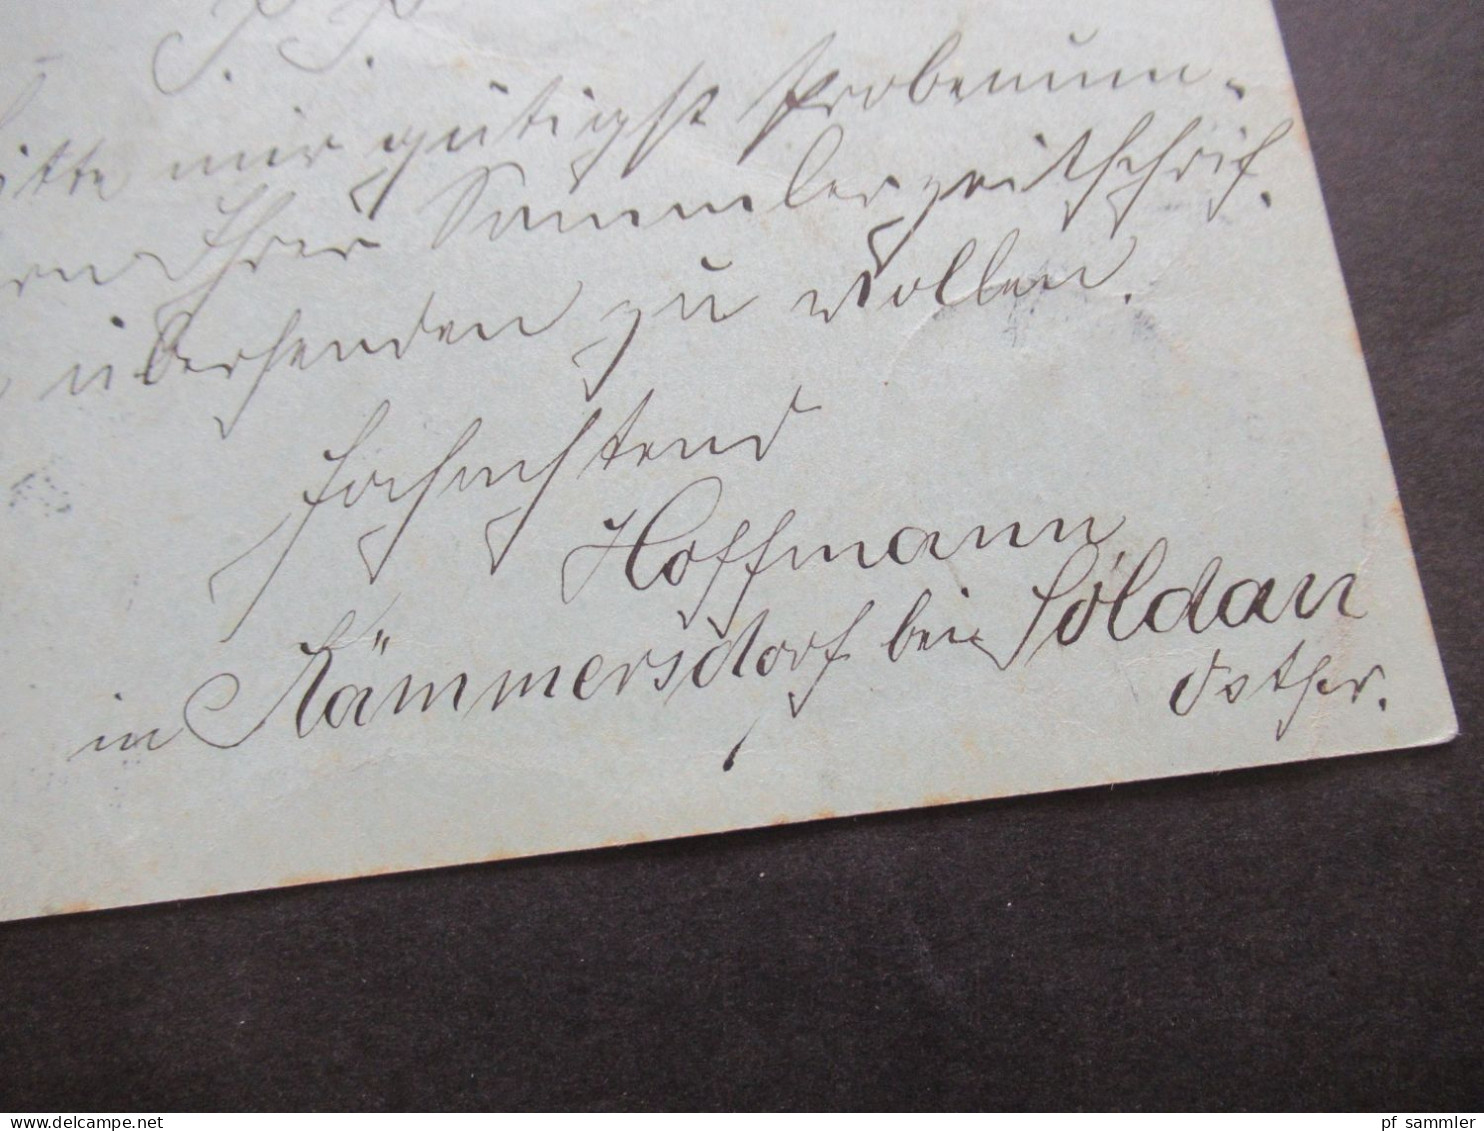 P. P.
bitte mir gütigst Probenum-
ern Ihrer Sammlerzeitschrif.
übersenden zu wollen.
Hochachtend
Hoffmann
in Kämmersdorf bei Soldau
Ostpr.
pf_sammler